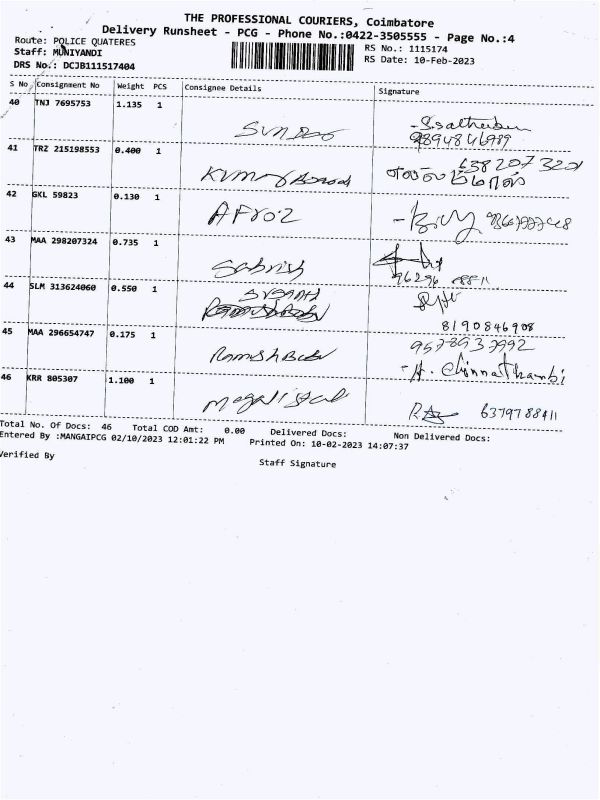 THE PROFESSIONAL COURIERS, Coimbatore
Delivery Runsheet - PCG - Phone No.:0422-3505555 - Page No.:4
Route: POLICE QUATERES
RS No.: 1115174
Staff: MUNIYANDI
RS Date: 10-Feb-2023
DRS No.: DCJB111517404
S No Consignment No Weight PCS Consignee Details Signature
40 TNJ 7695753 1.135 1
41 TRZ 215198553 0.400 1
42 GKL 59823 0.130 1 AFroz
43 MAA 298207324 0.735 1 Sabrish
44 SLM 313624060 0.550 1
8190846908
45 MAA 296654747 0.175 1 Ramesh Babu
9578937992
46 KRR 805307 1.100 1
Total No. Of Docs: 46 Total COD Amt: 0.00 Delivered Docs: Non Delivered Docs:
Entered By :MANGAIPCG 02/10/2023 12:01:22 PM Printed On: 10-02-2023 14:07:37
Verified By
Staff Signature